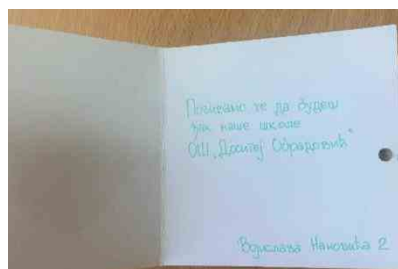 Позивамо те да будеш
ђак наше школе
ОШ „Доситеј Обрадовић"
Војислава Нановића 2